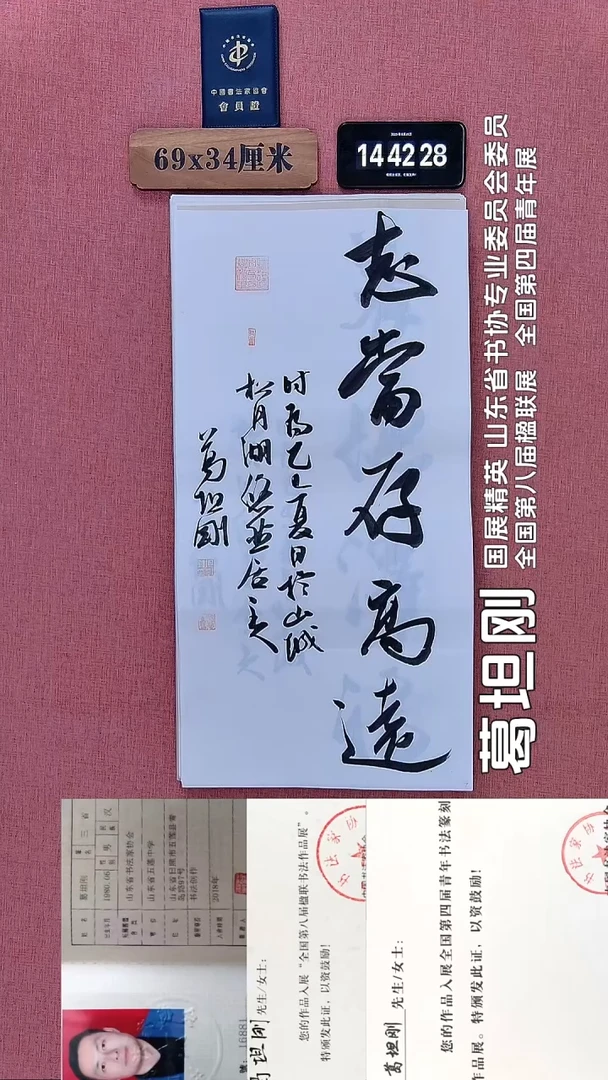 中國書法家協會
會員證
69x34厘米
14 42 28
志當存高遠
时为乙巳夏日於山城
松月湖悠然居主人
葛坦刚
国展精英 山东省书协专业委员会委员
全国第八届楹联展 全国第四届青年展
葛坦刚
1980.06
男
汉
山东省书法家协会
山东省五莲中学
书法创作
2018年
葛坦刚 先生/女士：
您的作品入展“全国第八届楹联书法作品展”。
特颁发此证，以资鼓励！
葛坦刚 先生/女士：
您的作品入展全国第四届青年书法篆刻
作品展。特颁发此证，以资鼓励！